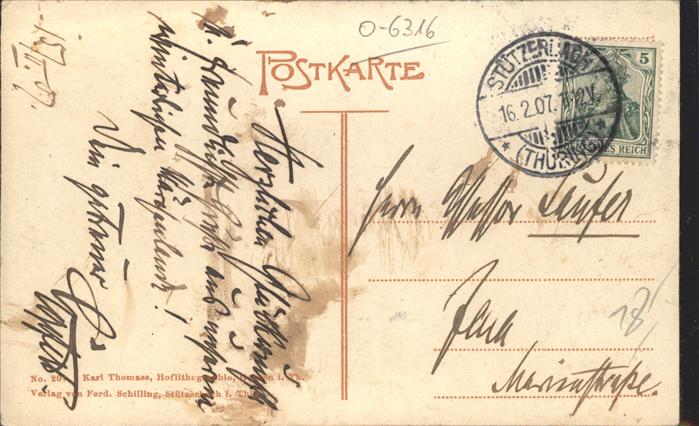 O-6316
POSTKARTE
STÜTZERBACH
16.2.07.
(THÜR.)
5
DEUTSCHES REICH
15/II. 07.
Herzlichen Glückwunsch
u. freundlichste Grüße aus unserem
winterlichen
Dein getreuer
Herrn Läufer
Jena
Marienstraße.
18/
No. 20 Karl Thomass, Hoflithographie, i. Th.
Verlag von Ferd. Schilling, Stützerbach i. Th.